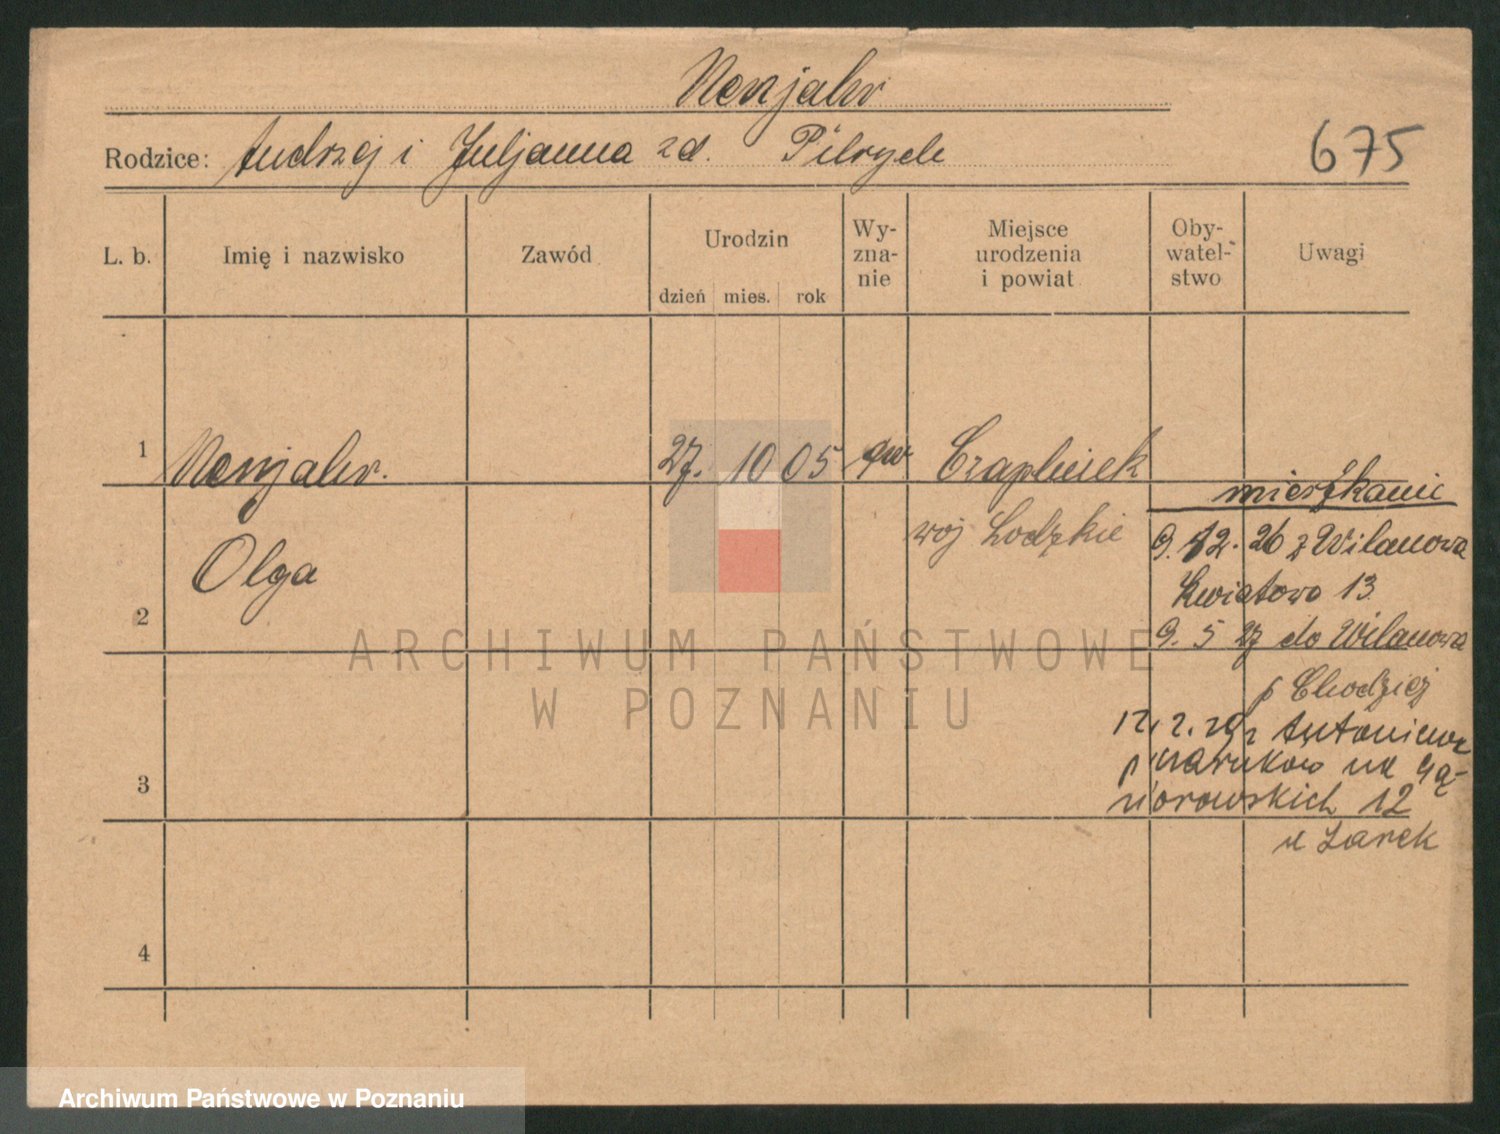 Neujahr
Rodzice: Andrzej i Juljanna zd.
675
L. b.
Imię i nazwisko
Zawód
Urodzin
dzień mies. rok
Wy-
zna-
nie
Miejsce
urodzenia
i powiat
Oby-
watel-
stwo
Uwagi
1 Neujahr. 27. 10 05 ew
woj Lodzkie
Olga
mieszkanie
9. 12. 26 z Wilanowa
Kwiatowa 13
9. 5 27 do Wilanowa
p Chodzież
12. 2. z Antoniewa
p na Gą-
siorowskich 12
u Larek
2
3
4
ARCHIWUM PAŃSTWOWE
W POZNANIU
Archiwum Państwowe w Poznaniu